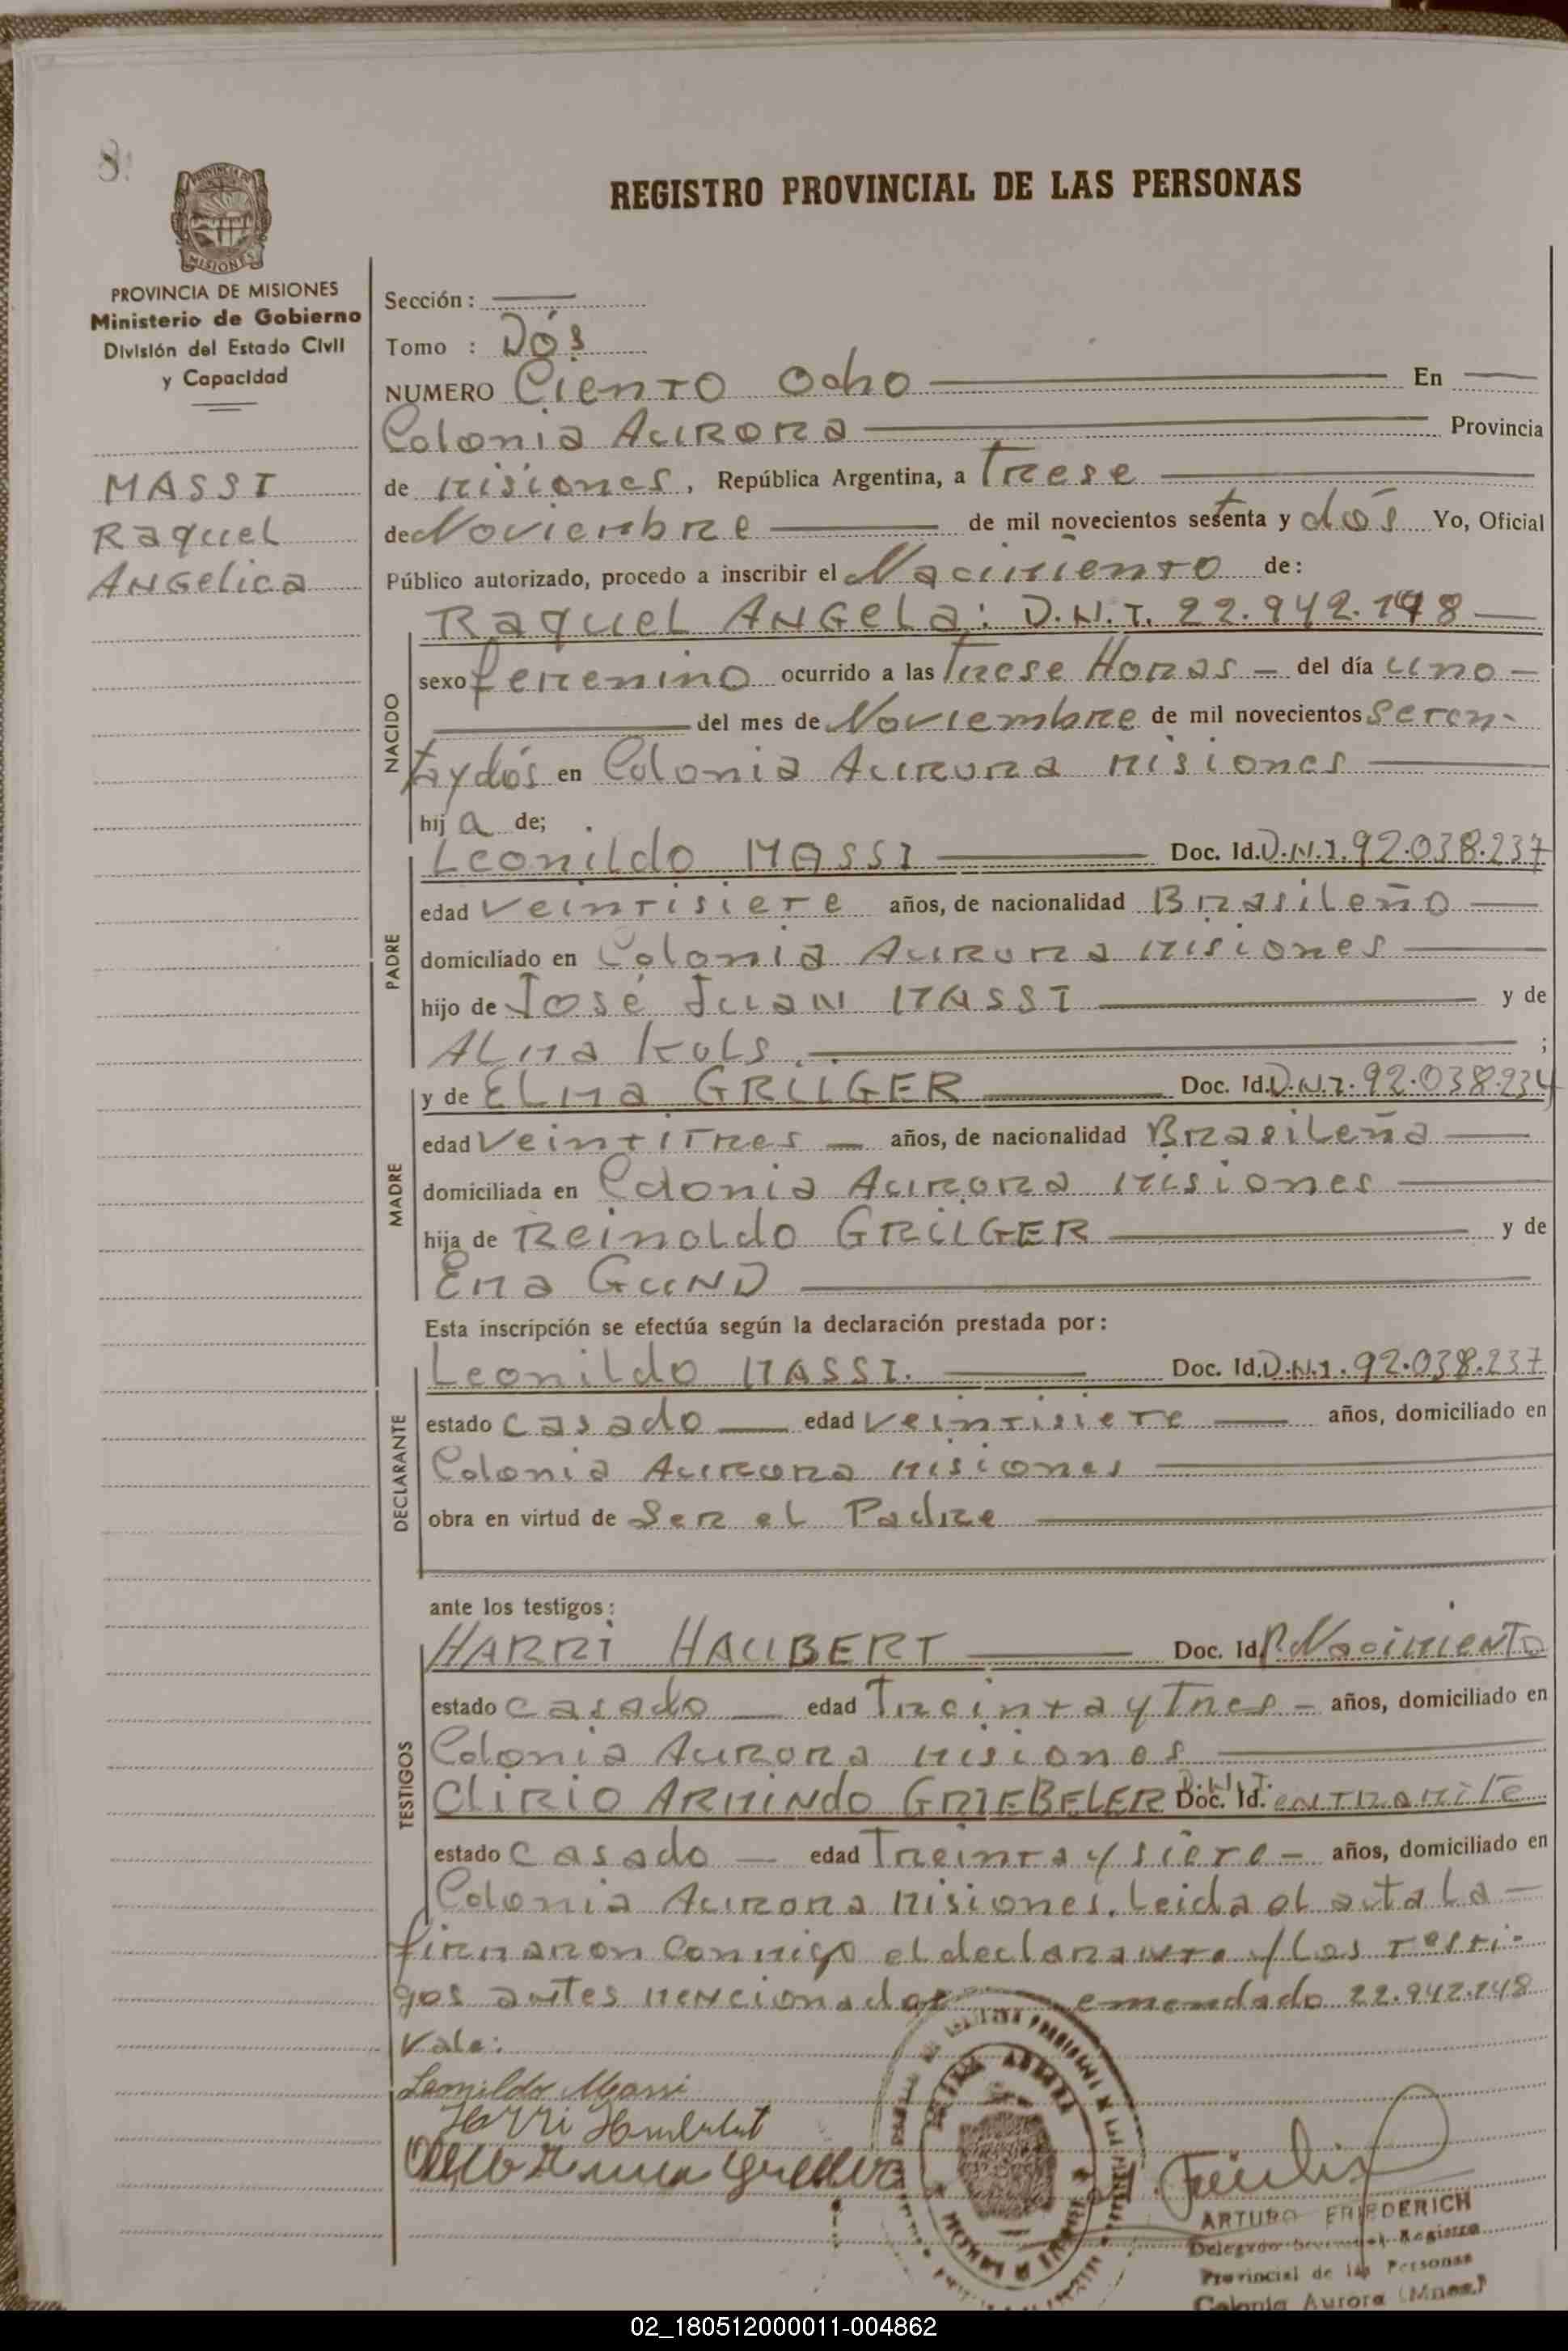 8
REGISTRO PROVINCIAL DE LAS PERSONAS
PROVINCIA DE
MISIONES
PROVINCIA DE MISIONES
Ministerio de Gobierno
División del Estado Civil
y Capacidad
MASSI
Raquel
ANGelica
Sección :
Tomo : Dós
NUMERO Ciento Ocho En
Colonia Aurora Provincia
de Misiones, República Argentina, a Trese
de Noviembre de mil novecientos setenta y dós Yo, Oficial
Público autorizado, procedo a inscribir el Nacimiento de:
Raquel ANGela: D.N.I. 22.942.148
NACIDO
sexo femenino ocurrido a las Trese Horas - del día uno -
del mes de Noviembre de mil novecientos Seten-
taydós en Colonia Aurora Misiones
hij a de;
PADRE
Leonildo MASSI Doc. Id. D.N.I. 92.038.237
edad veintisiete años, de nacionalidad Brasileño
domiciliado en Colonia Aurora Misiones
hijo de José Juan MASSI y de
ALMa Kols. ;
MADRE
y de ELMa GRÜGER Doc. Id. D.N.I. 92.038.234
edad veintitres - años, de nacionalidad Brasileña
domiciliada en Colonia Aurora Misiones
hija de Reinoldo GRÜGER y de
Ema GUND
Esta inscripción se efectúa según la declaración prestada por:
DECLARANTE
Leonildo MASSI. Doc. Id. D.N.I. 92.038.237
estado casado edad veintisiete años, domiciliado en
Colonia Aurora Misiones
obra en virtud de Ser el Padre
ante los testigos:
TESTIGOS
HARRi HAUBERT Doc. Id. P. Nacimiento
estado casado edad Treinta y Tres - años, domiciliado en
Colonia Aurora Misiones
CliRiO ARMiNdo GRIEBELER D.N.I. Doc. Id. enTRaMiTe
estado Casado - edad Treinta y siete - años, domiciliado en
Colonia Aurora Misiones. Leida el acta La -
firmaron conmigo el declarante y Los testi-
gos antes mencionados emendado 22.942.148
Vale:
Leonildo Massi
Harri Haubert
ARTURO FRIEDERICH
Delegado Seccional Registro
Provincial de las Personas
Colonia Aurora (Mnes.)
02_180512000011-004862